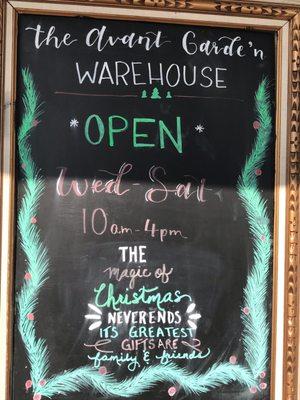 the Avant Garde'n
WAREHOUSE
OPEN
Wed-Sat
10am-4pm
THE
magic of
Christmas
NEVER ENDS
ITS GREATEST
GIFTS ARE
family & friends